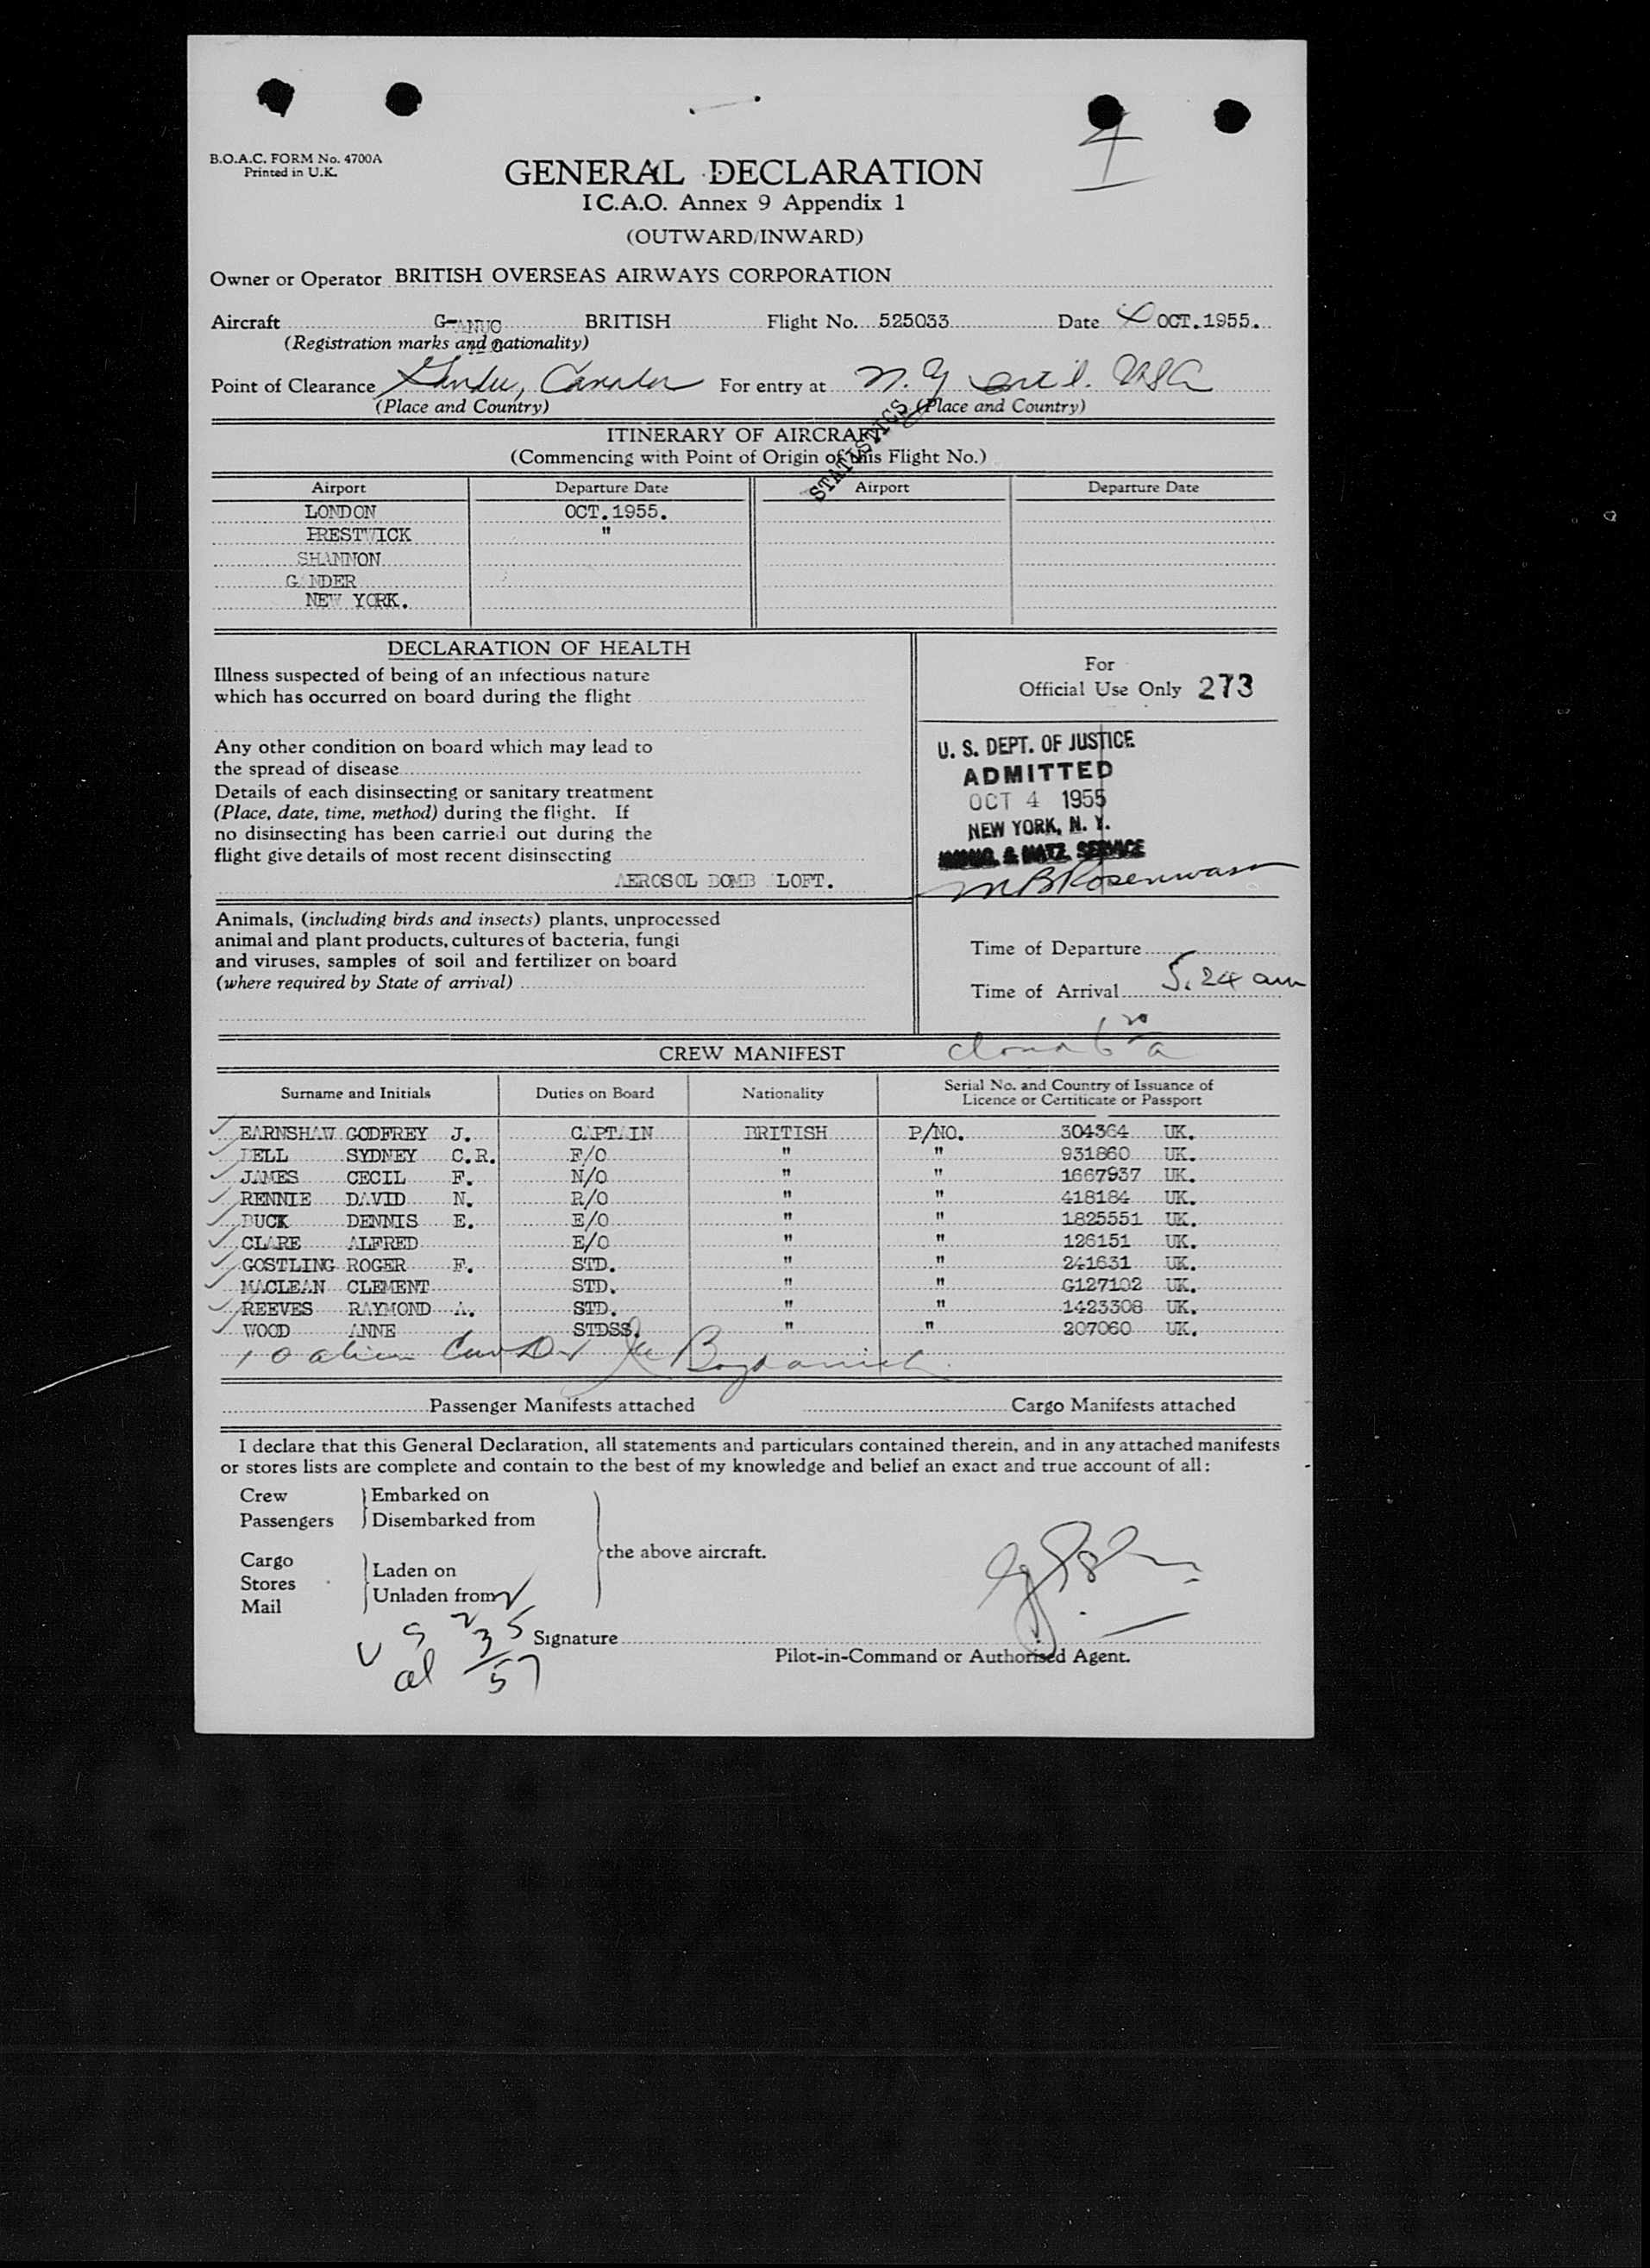 4
B.O.A.C. FORM No. 4700A
Printed in U.K.
GENERAL DECLARATION
I C.A.O. Annex 9 Appendix 1
(OUTWARD/INWARD)
Owner or Operator BRITISH OVERSEAS AIRWAYS CORPORATION
Aircraft G- BRITISH Flight No. 525033 Date 4 OCT.1955.
(Registration marks and nationality)
Point of Clearance Gander, Canada For entry at N.Y USA
(Place and Country) (Place and Country)
STATISTICS
ITINERARY OF AIRCRAFT
(Commencing with Point of Origin of this Flight No.)
Airport Departure Date Airport Departure Date
LONDON OCT.1955.
PRESTWICK "
SHANNON
GANDER
NEW YORK.
DECLARATION OF HEALTH
Illness suspected of being of an infectious nature
which has occurred on board during the flight
Any other condition on board which may lead to
the spread of disease
Details of each disinsecting or sanitary treatment
(Place, date, time, method) during the flight. If
no disinsecting has been carried out during the
flight give details of most recent disinsecting
AEROSOL BOMB ALOFT.
For
Official Use Only 273
U. S. DEPT. OF JUSTICE
ADMITTED
OCT 4 1955
NEW YORK, N. Y.
IMMIG. & NATZ. SERVICE
Animals, (including birds and insects) plants, unprocessed
animal and plant products, cultures of bacteria, fungi
and viruses, samples of soil and fertilizer on board
(where required by State of arrival)
Time of Departure
Time of Arrival 5.24 am
CREW MANIFEST
Surname and Initials Duties on Board Nationality Serial No. and Country of Issuance of
Licence or Certificate or Passport
EARNSHAW GODFREY J. CAPTAIN BRITISH P/NO. 304364 UK.
BELL SYDNEY C.R. F/O " " 931860 UK.
JAMES CECIL F. N/O " " 1667937 UK.
RENNIE DAVID N. R/O " " 418184 UK.
BUCK DENNIS E. E/O " " 1825551 UK.
CLARE ALFRED E/O " " 126151 UK.
GOSTLING ROGER F. STD. " " 241631 UK.
MACLEAN CLEMENT STD. " " G127102 UK.
REEVES RAYMOND A. STD. " " 1423308 UK.
WOOD ANNE STDSS. " " 207060 UK.
10 alien
Passenger Manifests attached Cargo Manifests attached
I declare that this General Declaration, all statements and particulars contained therein, and in any attached manifests
or stores lists are complete and contain to the best of my knowledge and belief an exact and true account of all:
Crew Embarked on
Passengers Disembarked from
the above aircraft.
Cargo Laden on
Stores
Mail Unladen from
U S 2
al 35
57
Signature
Pilot-in-Command or Authorised Agent.